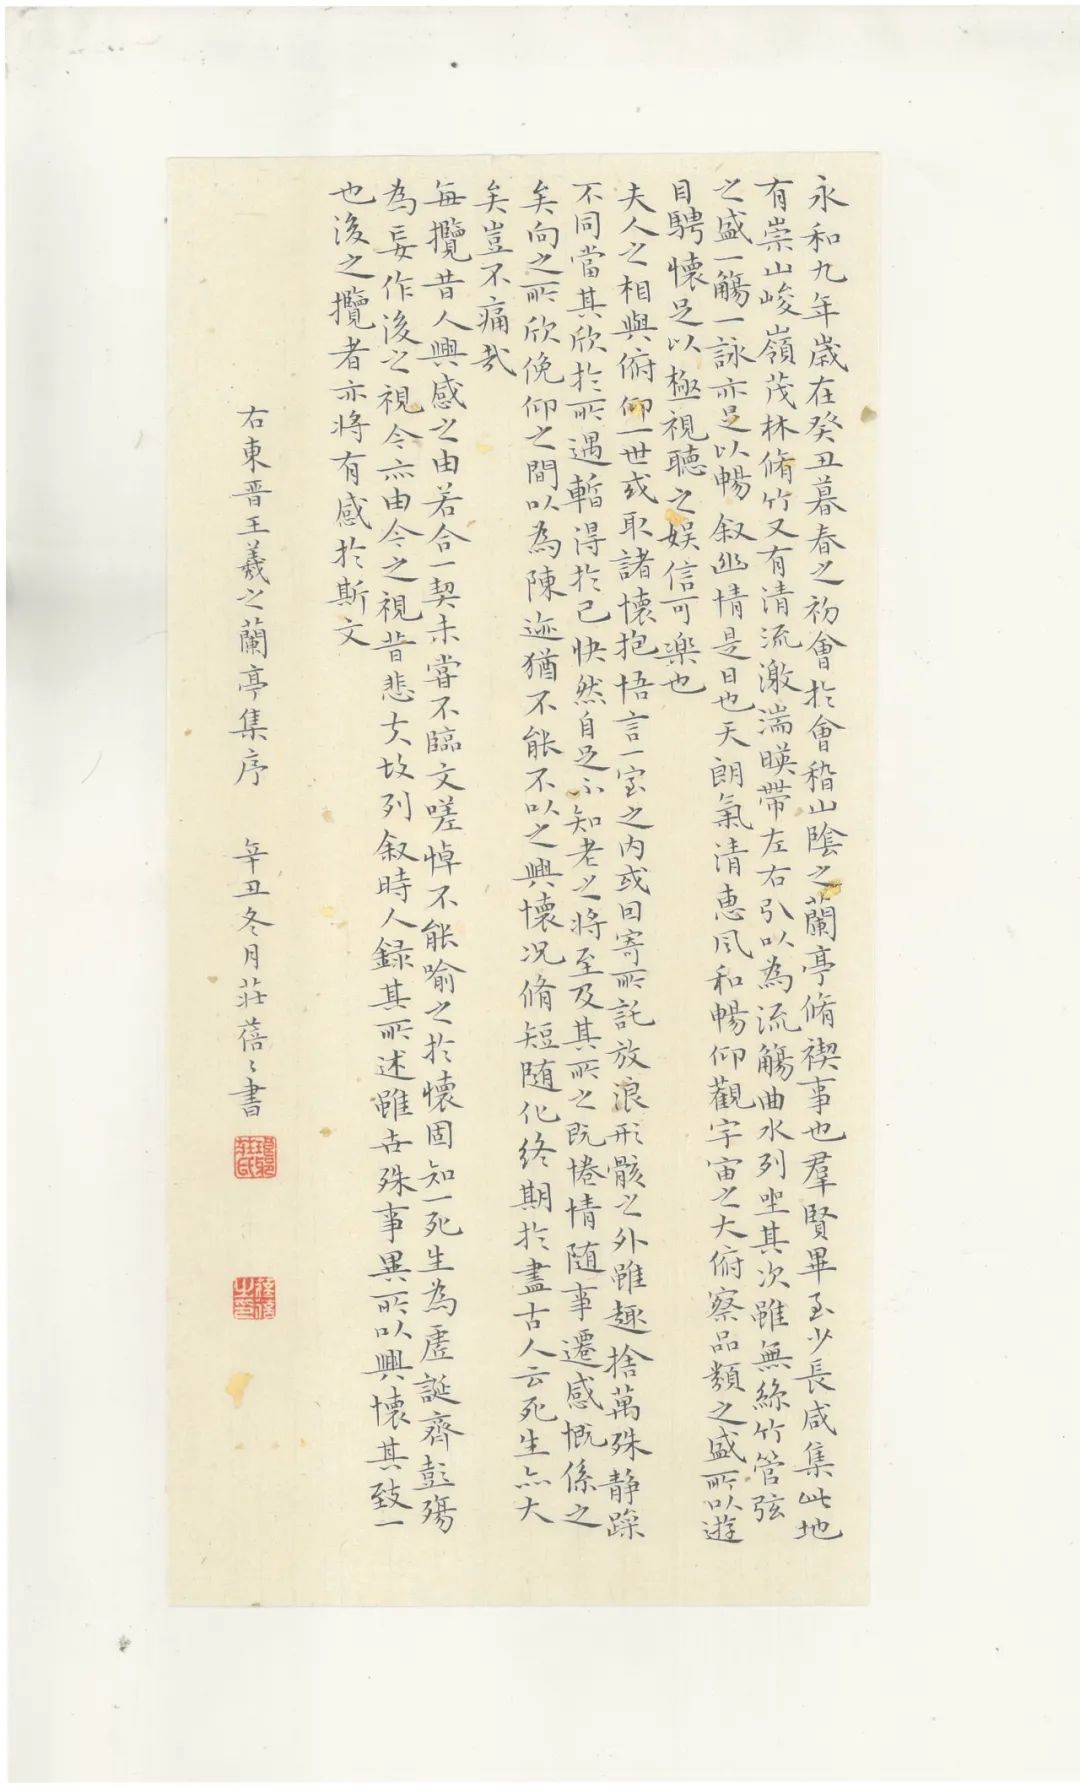 永和九年歲在癸丑暮春之初會於會稽山陰之蘭亭脩禊事也羣賢畢至少長咸集此地
有崇山峻嶺茂林脩竹又有清流激湍暎帶左右引以為流觴曲水列坐其次雖無絲竹管弦
之盛一觴一詠亦足以暢叙幽情是日也天朗氣清惠風和暢仰觀宇宙之大俯察品類之盛所以遊
目騁懷足以極視聽之娱信可樂也
夫人之相與俯仰一世或取諸懷抱悟言一室之内或因寄所託放浪形骸之外雖趣捨萬殊静躁
不同當其欣於所遇暫得於己快然自足不知老之將至及其所之既惓情随事遷感慨係之
矣向之所欣俛仰之間以為陳迹猶不能不以之興懷况脩短随化終期於盡古人云死生亦大
矣豈不痛哉
每攬昔人興感之由若合一契未嘗不臨文嗟悼不能喻之於懷固知一死生為虚誕齊彭殤
為妄作後之視今亦由今之視昔悲夫故列叙時人録其所述雖世殊事異所以興懷其致一
也後之攬者亦將有感於斯文
右東晋王羲之蘭亭集序 辛丑冬月莊蓓〻書